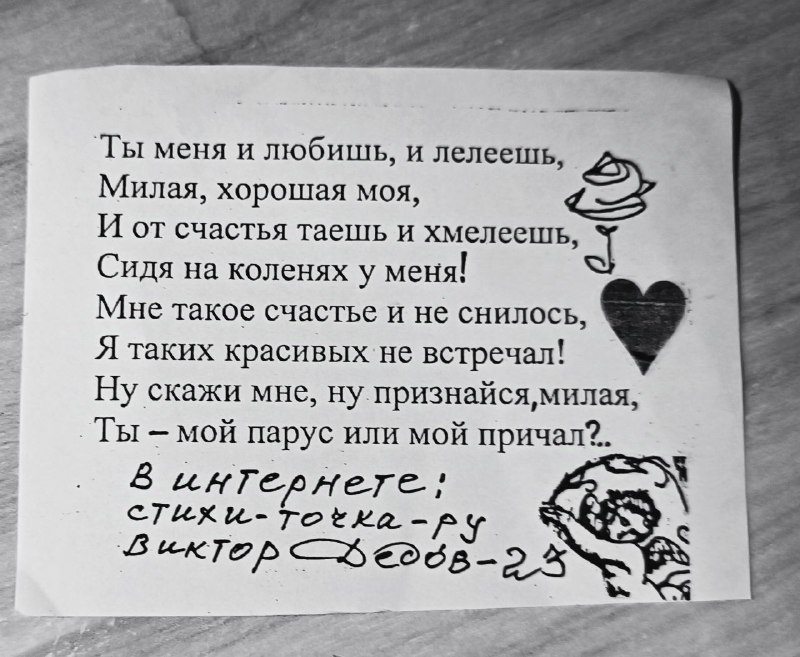 Ты меня и любишь, и лелеешь,
Милая, хорошая моя,
И от счастья таешь и хмелеешь,
Сидя на коленях у меня!
Мне такое счастье и не снилось,
Я таких красивых не встречал!
Ну скажи мне, ну признайся,милая,
Ты – мой парус или мой причал?..
В интернете:
стихи-точка-ру
Виктор Дедов-23